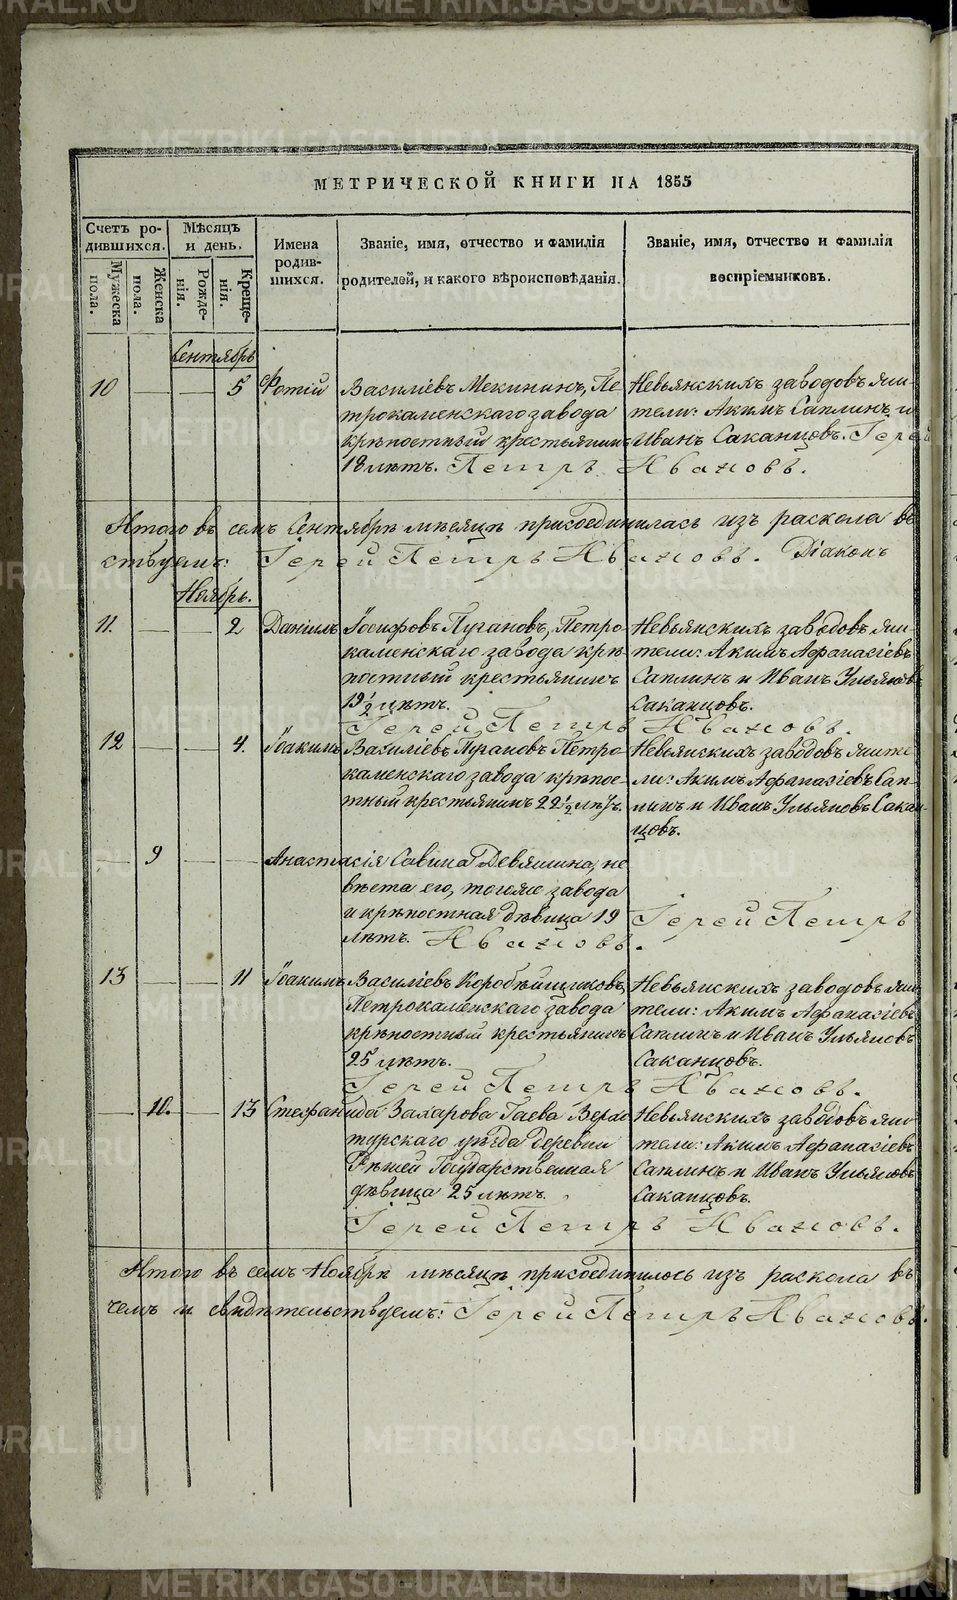 METRIKI.GASO-URAL.RU
МЕТРИЧЕСКОЙ КНИГИ НА 1855
Счетъ ро-
дившихся.
Мужеска
пола.
Женска
пола.
Мѣсяцъ
и день.
Рожде-
нія.
Креще-
нія.
Имена
родив-
шихся.
Званіе, имя, отчество и фамилія
родителей, и какого вѣроисповѣданія.
Званіе, имя, отчество и фамилія
воспріемниковъ.
Сентябрь
10 5 Фотій Василіевъ Мекининъ, Пе-
трокаменскаго завода
крѣпостный крестьянинъ
18 лѣтъ.
Невьянскихъ заводовъ жи-
тели: Акимъ Саплинъ и
Иванъ Саканцовъ. Іерей
Петръ Ивановъ.
Итого въ семъ Сентябрѣ мѣсяцѣ присоединилась изъ раскола
ствуемъ: Іерей Петръ Ивановъ. Діаконъ
Ноябрь.
11. 2 Даніилъ Іосифовъ Пугановъ, Петро-
каменскаго завода крѣ-
постный крестьянинъ
19 1/2 лѣтъ.
Невьянскихъ заводовъ жи-
тели: Акимъ Афанасіевъ
Саплинъ и Иванъ Ульяновъ
Саканцовъ.
Іерей Петръ Ивановъ.
12 4. Іоакимъ Василіевъ Пугановъ Петро-
каменскаго завода крѣпос-
тный крестьянинъ 22 1/2 лѣтъ.
Невьянскихъ заводовъ жите-
ли: Акимъ Афанасіевъ Сап-
линъ и Иванъ Ульяновъ Сакан-
цовъ.
9 Анастасія Савина Девяшина, не-
вѣста его, тогоже завода
и крѣпостная дѣвица 19
лѣтъ.
Іерей Петръ
Ивановъ.
13 11 Іоакимъ Василіевъ Коробейщиковъ,
Петрокаменскаго завода
крѣпостный крестьянинъ
25 лѣтъ.
Невьянскихъ заводовъ жи-
тели: Акимъ Афанасіевъ
Саплинъ и Иванъ Ульяновъ
Саканцовъ.
Іерей Петръ Ивановъ.
10. 13 Стефанида Захарова Гаева Верхо-
турскаго уѣзда деревни
Государственная
дѣвица 25 лѣтъ.
Невьянскихъ заводовъ жи-
тели: Акимъ Афанасіевъ
Саплинъ и Иванъ Ульяновъ
Саканцовъ.
Іерей Петръ Ивановъ.
Итого въ семъ Ноябрѣ мѣсяцѣ присоединилось изъ раскола въ
чемъ и свидѣтельствуемъ: Іерей Петръ Ивановъ.